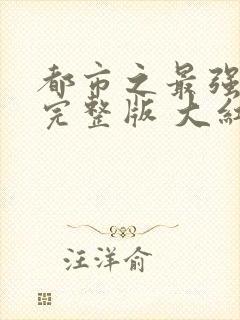 都市之最强
完整版 大红
汪洋俞